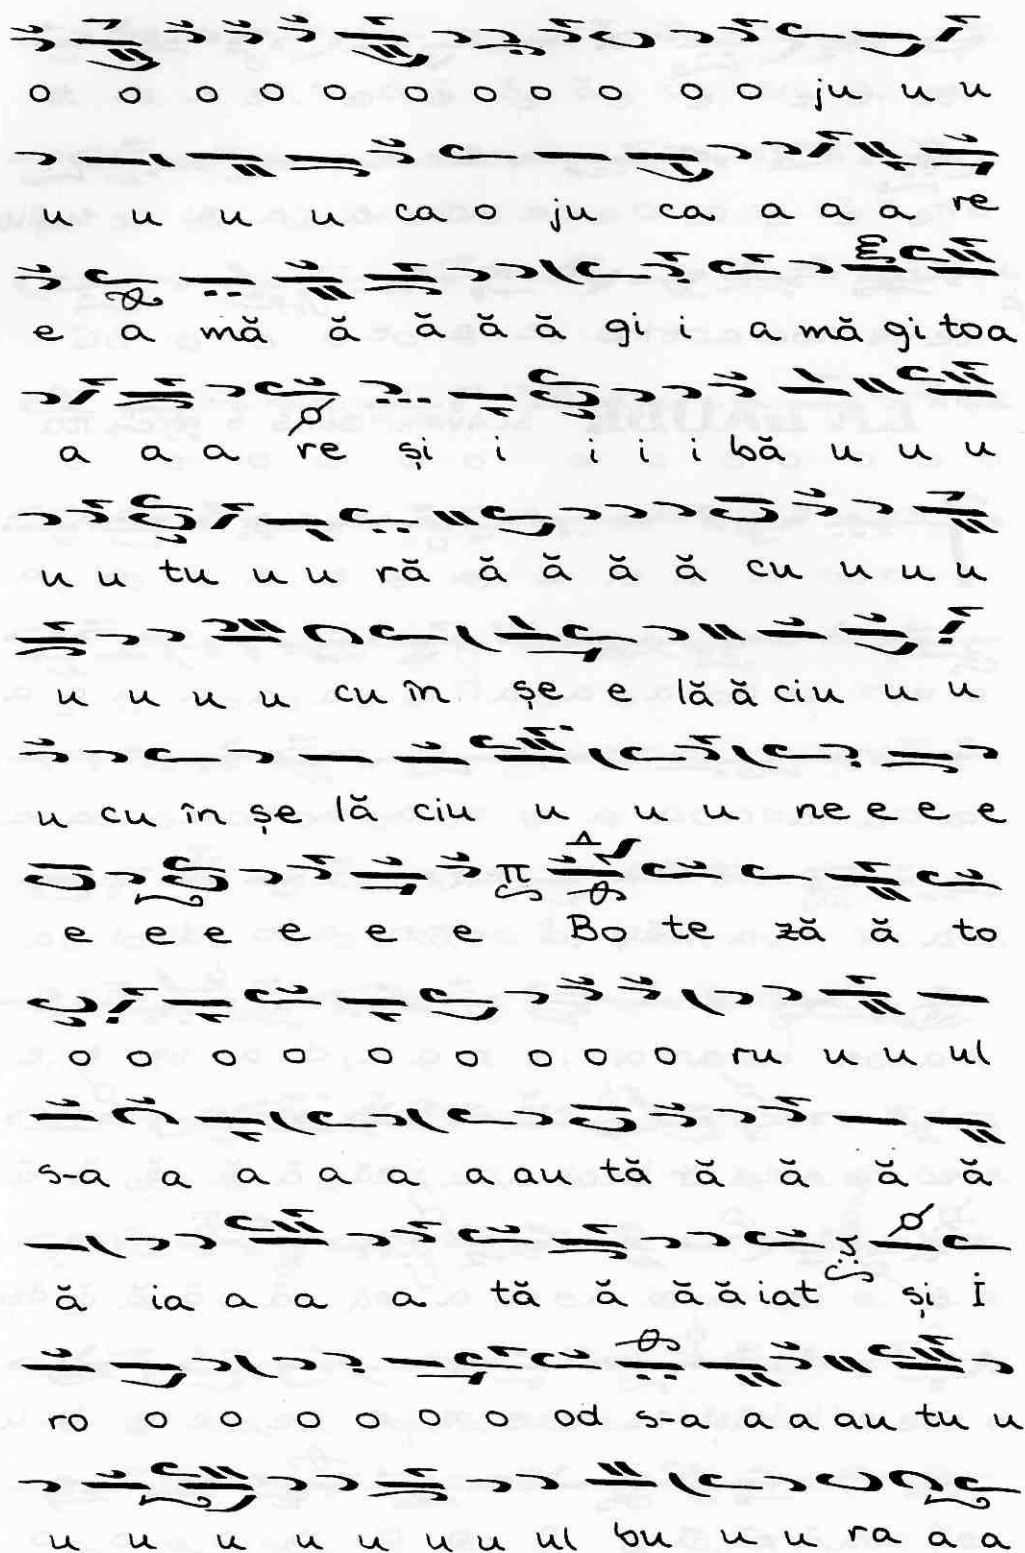 o o o o o o o o o o o ju u u
u u u u u ca o ju ca a a a re
e a mă ă ă ă ă gi i a mă gi toa
a a a re și i i i i bă u u u
u u tu u u ră ă ă ă ă cu u u u
u u u u cu în șe e lă ă ciu u u
u cu în șe lă ciu u u u ne e e e
e e e e e e Bo te ză ă to
o o o o o o o o ru u u ul
s-a a a a a a au tă ă ă ă ă
ă ia a a a tă ă ă ă iat și I
ro o o o o o o od s-a a a au tu u
u u u u u u u ul bu u u ra a a